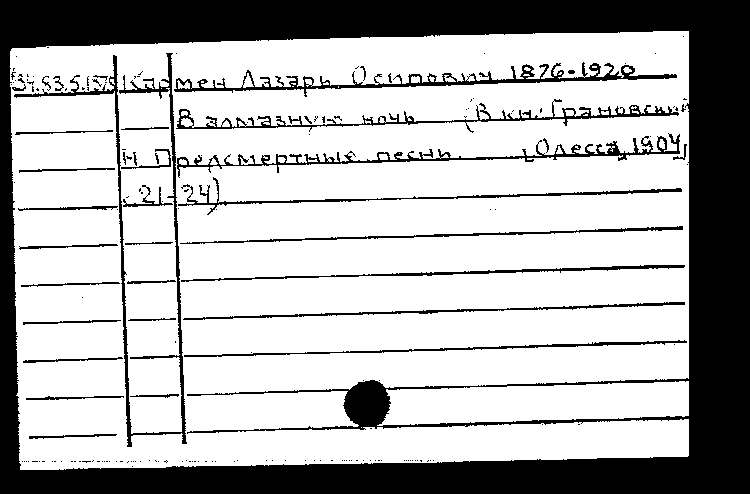 34.83.5.1379 Кармен Лазарь Осипович 1876-1920
В алмазную ночь (В кн.: Грановский
Н Предсмертные песни. [Одесса, 1904,
с. 21-24)